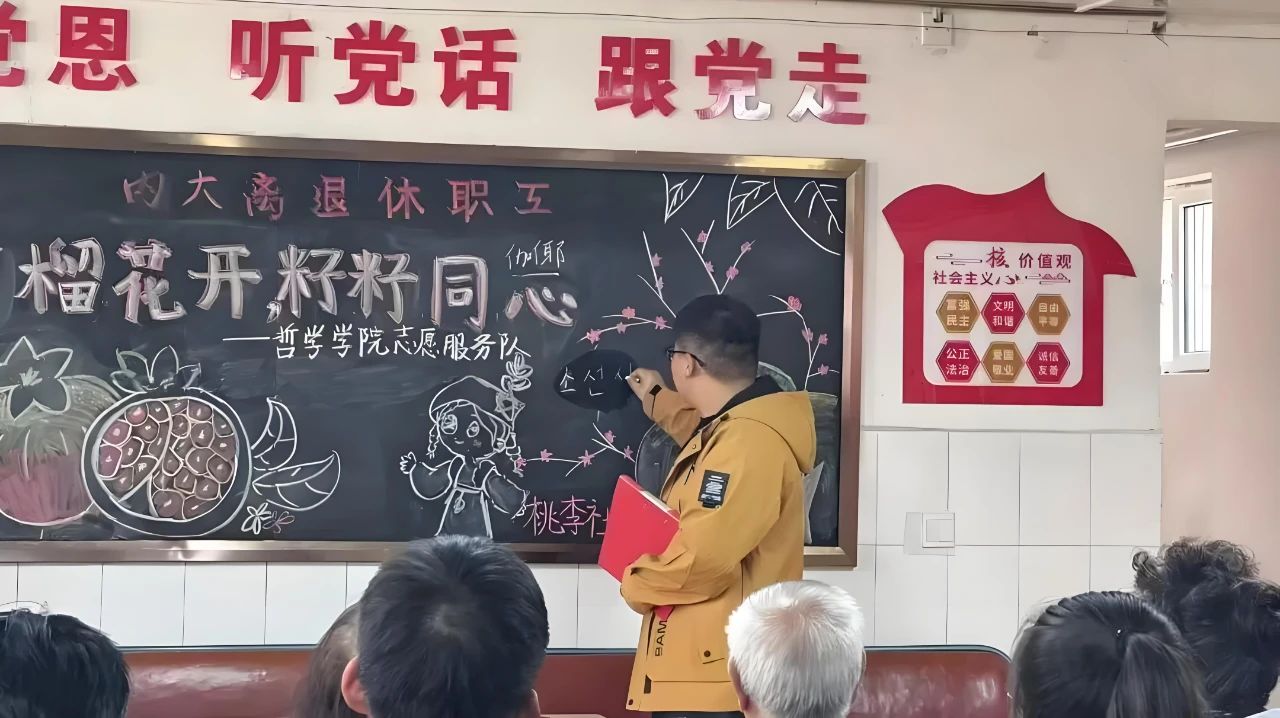 党恩 听党话 跟党走
内大离退休职工
榴花开,籽籽同心
伽倻
——哲学学院志愿服务队
조선
桃李社
核 价值观
社会主义
富强 文明 自由
民主 和谐 平等
公正 爱国 诚信
法治 敬业 友善
BAM